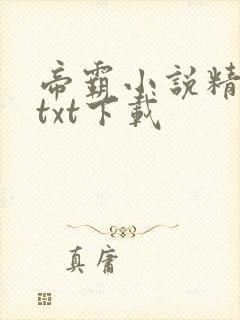 帝霸小說精
txt下載
真庸